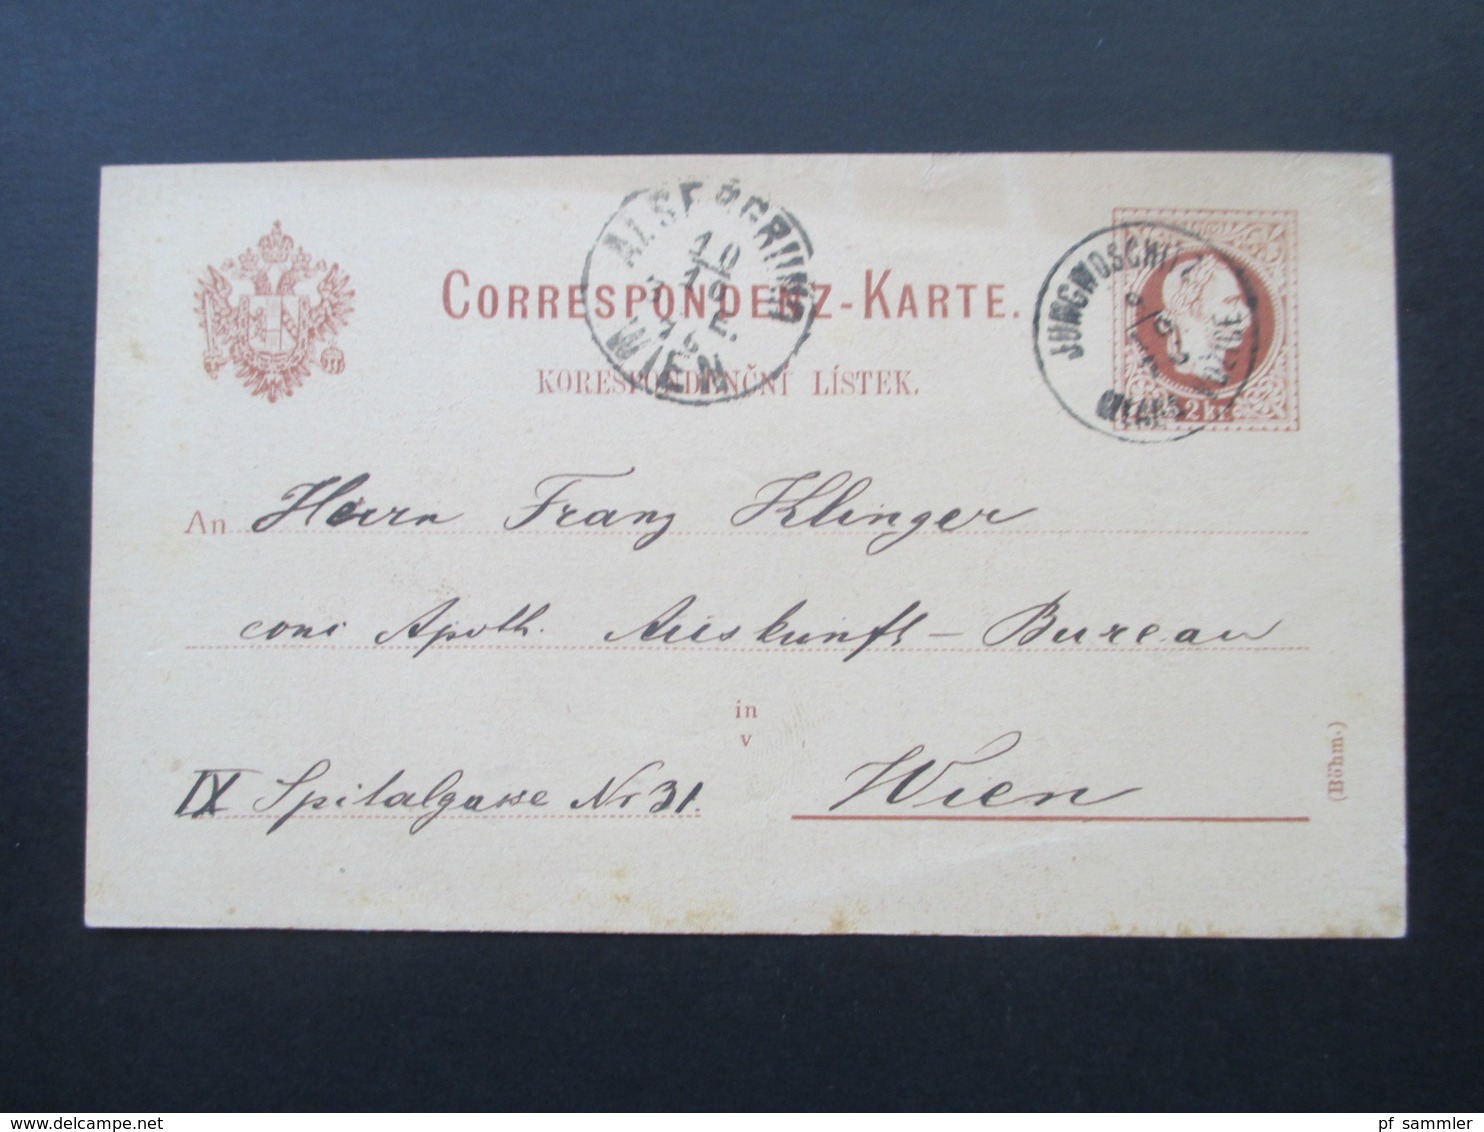 CORRESPONDENZ-KARTE.
KORESPONDENČNÍ LÍSTEK.
ALSERGRUND
WIEN
JUNGWOSCHITZ
2 kr
An Herrn Franz Klinger
conc Apoth. Auskunft - Bureau
in
v
IX Spitalgasse Nr 31.
Wien
(Böhm.)
www.delcampe.net
pf_sammler